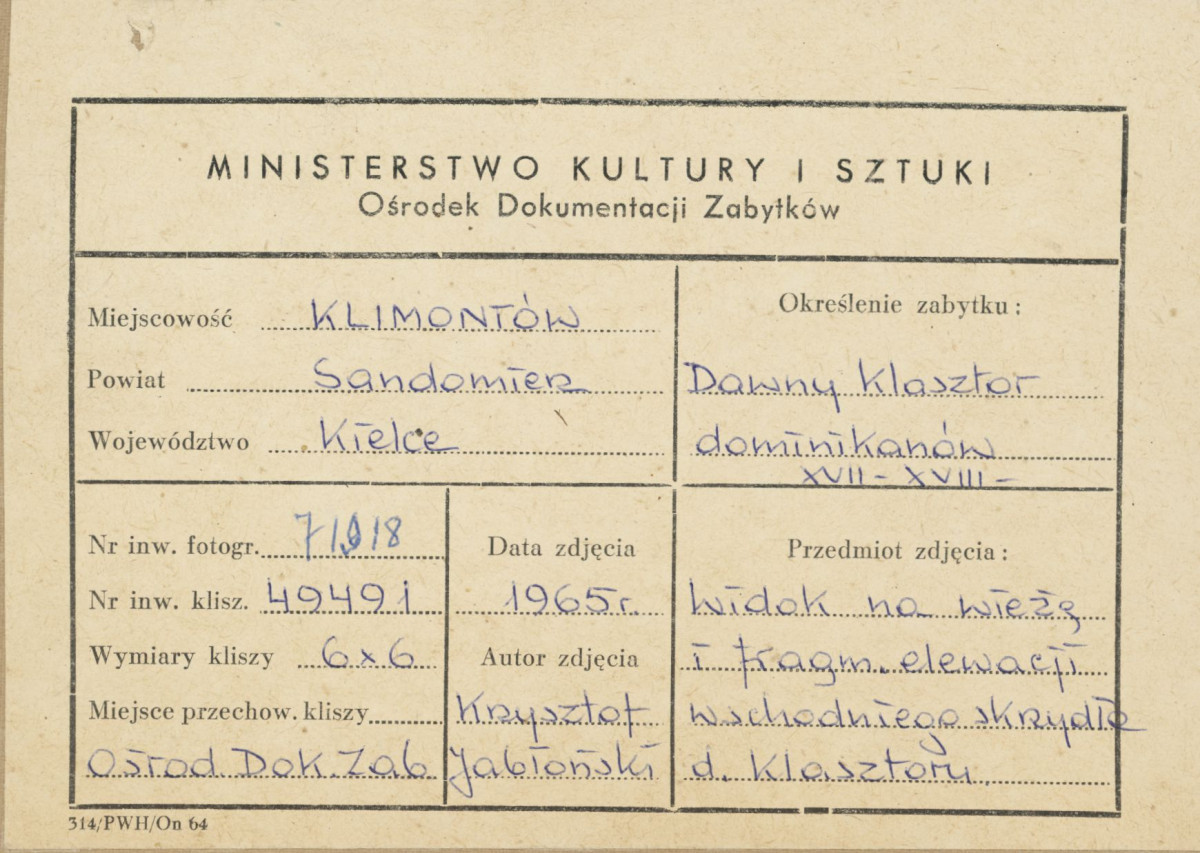 MINISTERSTWO KULTURY I SZTUKI
Ośrodek Dokumentacji Zabytków
Miejscowość KLIMONTÓW
Powiat Sandomierz
Województwo Kielce
Określenie zabytku:
Dawny klasztor
dominikanów
XVII - XVIII -
Nr inw. fotogr.
Nr inw. klisz. 49491
Wymiary kliszy 6x6
Miejsce przechow. kliszy
Ośrod. Dok. Zab
Data zdjęcia
1965r.
Autor zdjęcia
Krzysztof
Jabłoński
Przedmiot zdjęcia:
widok na wieżę
i fragm. elewacji
wschodniego skrzydła
d. klasztoru.
314/PWH/On 64